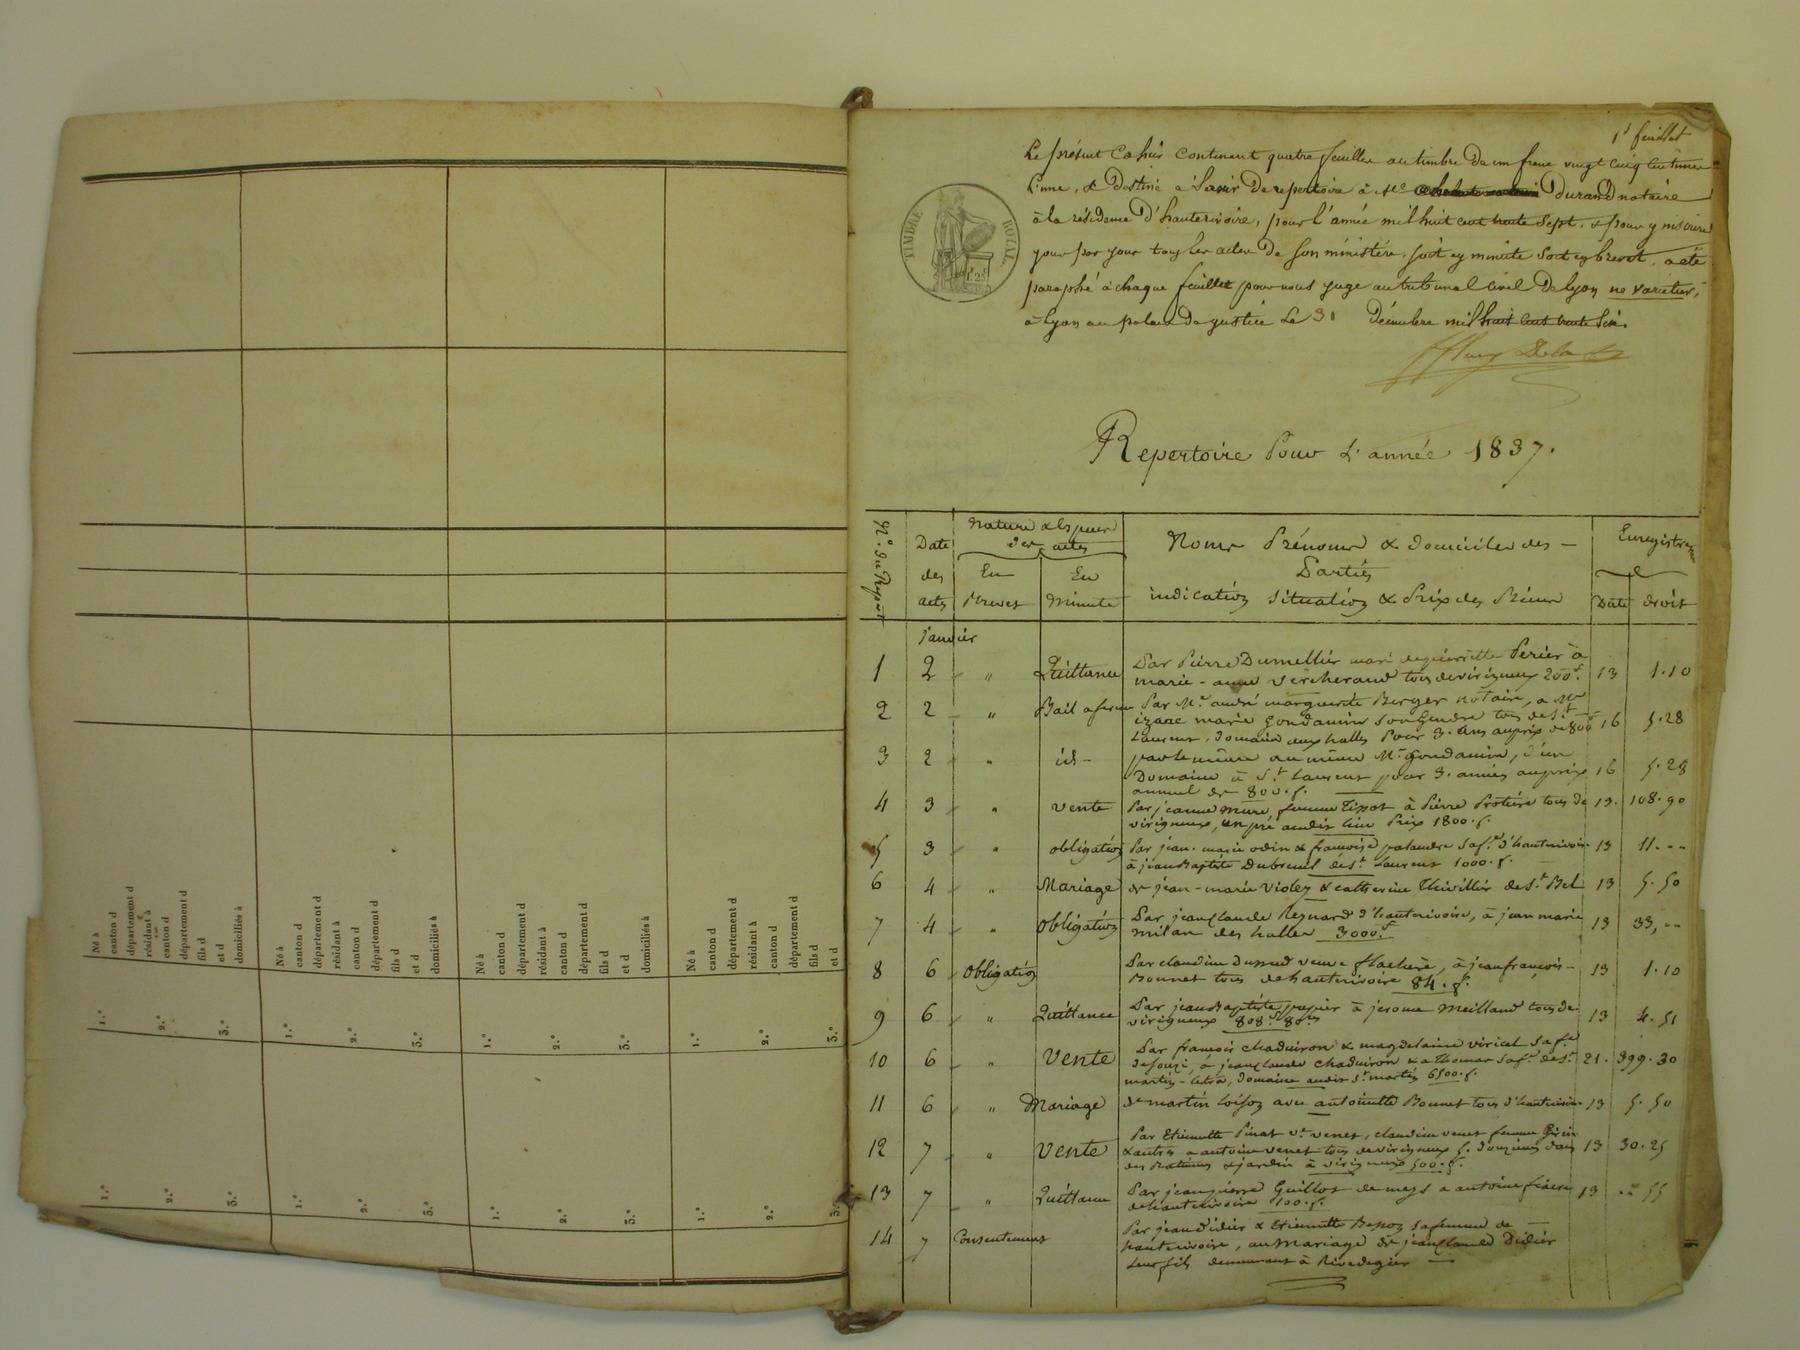 Né à
canton d
département d
résidant à
canton d
département d
fils d
et d
domiciliés à
Né à
canton d
département d
résidant à
canton d
département d
fils d
et d
domiciliés à
Né à
canton d
département d
résidant à
canton d
département d
fils d
et d
domiciliés à
Né à
canton d
département d
résidant à
canton d
département d
fils d
et d
1.º 2.º 3.º 1.º 2.º 3.º 1.º 2.º 3.º 1.º 2.º 3.º
1.º 2.º 3.º 1.º 2.º 3.º 1.º 2.º 3.º 1.º 2.º 3.º
1r feuillet
Le présent Cahier Contenant quatre feuilles au timbre de un franc vingt cinq centimes
l'une, & Destiné à Servir De repertoire à Me Durand notaire
à la résidence D'hauterivoire, pour l'année mil huit cent trente Sept, & pour y inscrire
jour par jour tous les actes De Son ministère, soit en minute soit en brevet, a été
paraphé à chaque feuillet par nous juge au tribunal Civil De Lyon ne varietur,
à Lyon au palais De justice Le 31 Décembre mil huit cent trente Six.
TIMBRE ROYAL
Repertoire Pour L'année 1837.
No. du Repert
Date des actes
Nature & Espèces des actes
En Brevet
En Minute
Noms Prénoms & domiciles des -
Parties
indication situation & Prix des Biens
Enregistreme
Date droit
janvier
1 2 " Quittance Par Pierre Dumellier mari de pierrette Perier à
marie-anne Vercherand tous de virigneux 200f. 13 1.10
2 2 " Bail a ferme Par Me. andré marguerite Berger notaire, a Mr
izaac marie Gondamin son Gendre tous de St.
Laurent, domaine aux halles Pour 3. ans au prix de 800 16 5.28
3 2 " id - par le même au même Mr. Gondamin, d'un
Domaine à St. Laurent pour 3. années au prix
annuel de 800.f. 16 5.28
4 3 " vente Par jeanne mure femme Tissot à Pierre Protière tous de
virigneux, un pré audit lieu Prix 1800.f. 13. 108.90
5 3 " obligation Par jean-marie odin & françoise palandre sa fe. d'hauterivoire
à jean Baptiste Dubreuil de St. Laurent 1000.f. 13 11.--
6 4 " Mariage de jean-marie Violey & catherine Thivillier de St. Bel 13 5.50
7 4 " obligation Par jean claude Reynard d'hauterivoire, à jean marie
milan des halles 3000.f 13 33,--
8 6 obligation Par claudine Dussud veuve flachère, à jean françois -
Bonnet tous de hauterivoire 84.f. 13 1.10
9 6 " Quittance Par jean Baptiste pupier à jerome Meilland tous de
virigneux 808.f 80c. 13 4.51
10 6 " Vente Par francois chaduiron & magdelaine viricel sa fe
, à jean claude chaduiron & a Thomas sa fe. de St.
martin-, domaine audit St. martin 6500.f. 21. 399.30
11 6 " Mariage de martin loison avec antoinette Bonnet tous d'hauterivoire 13 5.50
12 7 " Vente Par Etiennette Pinat ve. venet, claudine venet femme Girin
& autres a antoine venet tous de virigneux
des Batimens & jardin à virigneux 500.f. 13 30.25
13 7 " Quittance Par jean pierre Guillot de meys a antoine
de hauterivoire 100.f. 13 .. 55
14 7 Consentement Par jean Didier & Etiennette Bepoz sa femme de -
hauterivoire, au Mariage de jean claude Didier
Leur fils demeurant à Rivedegier -